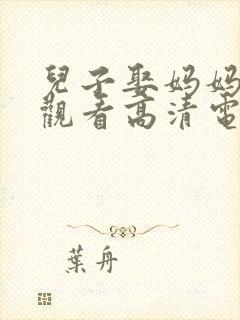 兒子娶妈妈
觀看高清電
葉舟